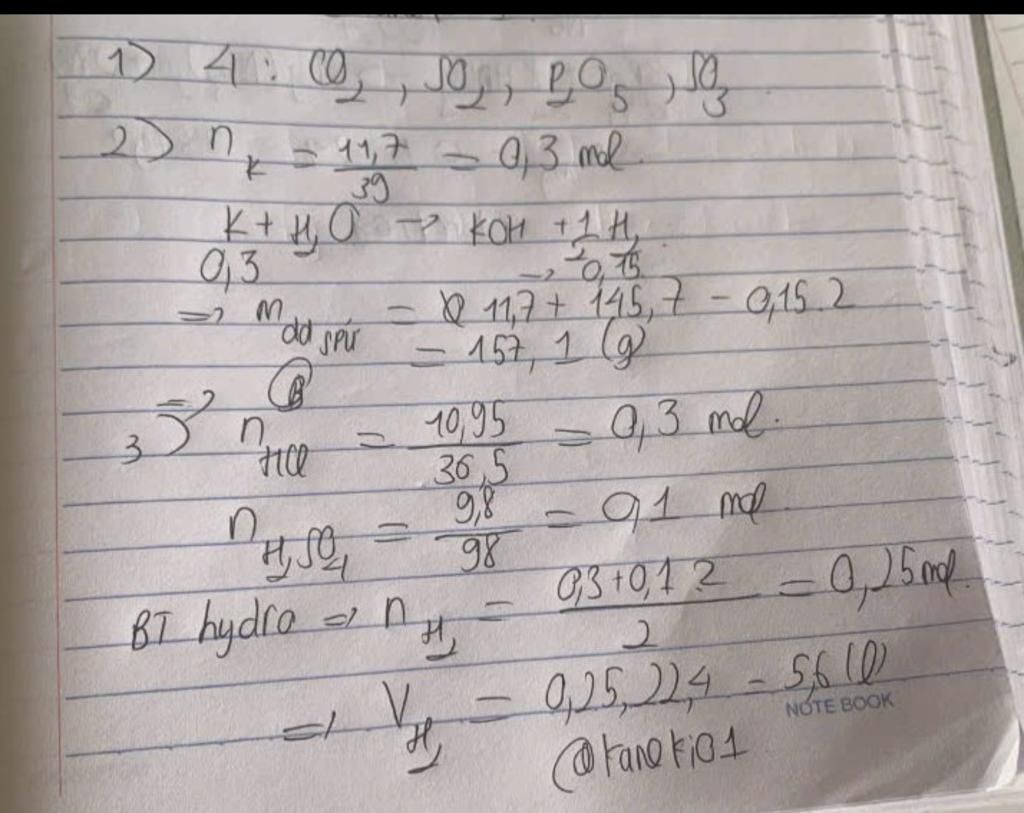 1) 4: CO2, SO2, P2O5, SO3
2) nK = 11,7/39 = 0,3 mol.
K + H2O → KOH + 1/2 H2
0,3 → 0,15
=> mdd spư = 11,7 + 145,7 - 0,15.2
= 157,1 (g)
=> B
3) nHCl = 10,95/36,5 = 0,3 mol.
nH2SO4 = 9,8/98 = 0,1 mol
BT hydro => nH2 = 0,3+0,1.2/2 = 0,25 mol.
=> VH2 = 0,25.22,4 = 5,6 (l)
NOTE BOOK
@kaneki01